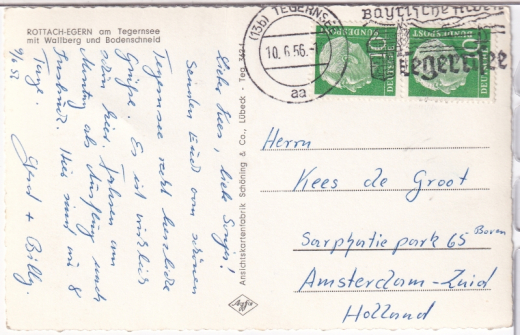 ROTTACH-EGERN am Tegernsee
mit Wallberg und Bodenschneid
Lieber Kees, liebe
Senden Euch vom schönen
Tegernsee recht herzliche
Grüße. Es ist wirklich
schön hier. Fahren am
Montag als Ausflug nach
Innsbruck. Hier sind wir 8
Tage.
Gerd + Billy.
9/6 53
Ansichtskartenfabrik Schöning & Co., Lübeck - Teg 3424
(13b) TEGERNSEE
10.6.56.-
aa
Bayrische Alpen
Tegernsee
DEUTSCHE BUNDESPOST
10
DEUTSCHE BUNDESPOST
10
Herrn
Kees de Groot
Sarphatiepark 65 Boven
Amsterdam-Zuid
Holland
Agfa